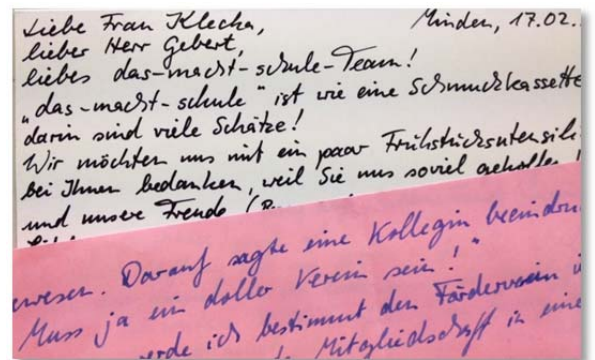 Liebe Frau Klecha, Minden, 17.02.
lieber Herr Gebert,
liebes das-macht-schule-Team!
"das-macht-schule" ist wie eine Schmuckkassette
darin sind viele Schätze!
Wir möchten uns mit ein paar Frühstücksutensili
bei Ihnen bedanken, weil Sie uns soviel geholfen
und unsere Freude
ewesen. Darauf sagte eine Kollegin beeindru
Muss ja ein doller Verein sein!"
erde ich bestimmt den Förderverein
Mitgliedschaft in eine